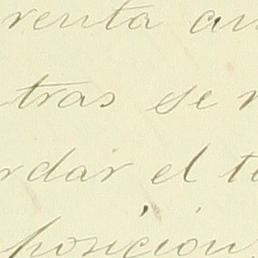 renta an
tras se
rdar el t
posicion